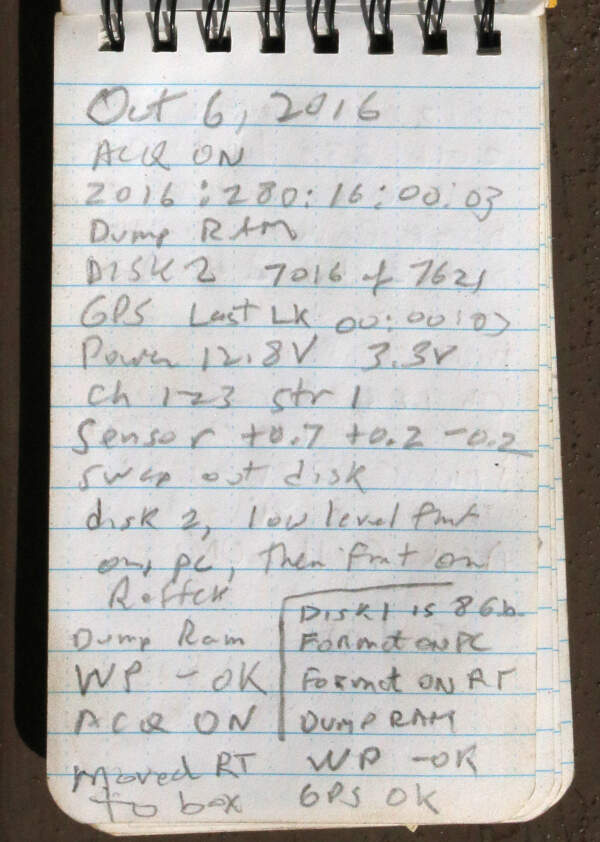 Oct 6, 2016
ACQ ON
2016:280:16:00:03
Dump RAM
DISK 2 7016 of 7621
GPS Last LK 00:00:03
Power 12.8V 3.3V
Ch 1-23 str 1
Sensor +0.7 +0.2 -0.2
swap out disk
disk 2, low level fmt
on, pc, then fmt on
Reftek
Dump Ram
WP - OK
ACQ ON
Moved RT
to box
Disk 1 is 8Gb.
Format on PC
Format ON RT
DUMP RAM
WP -OK
GPS OK